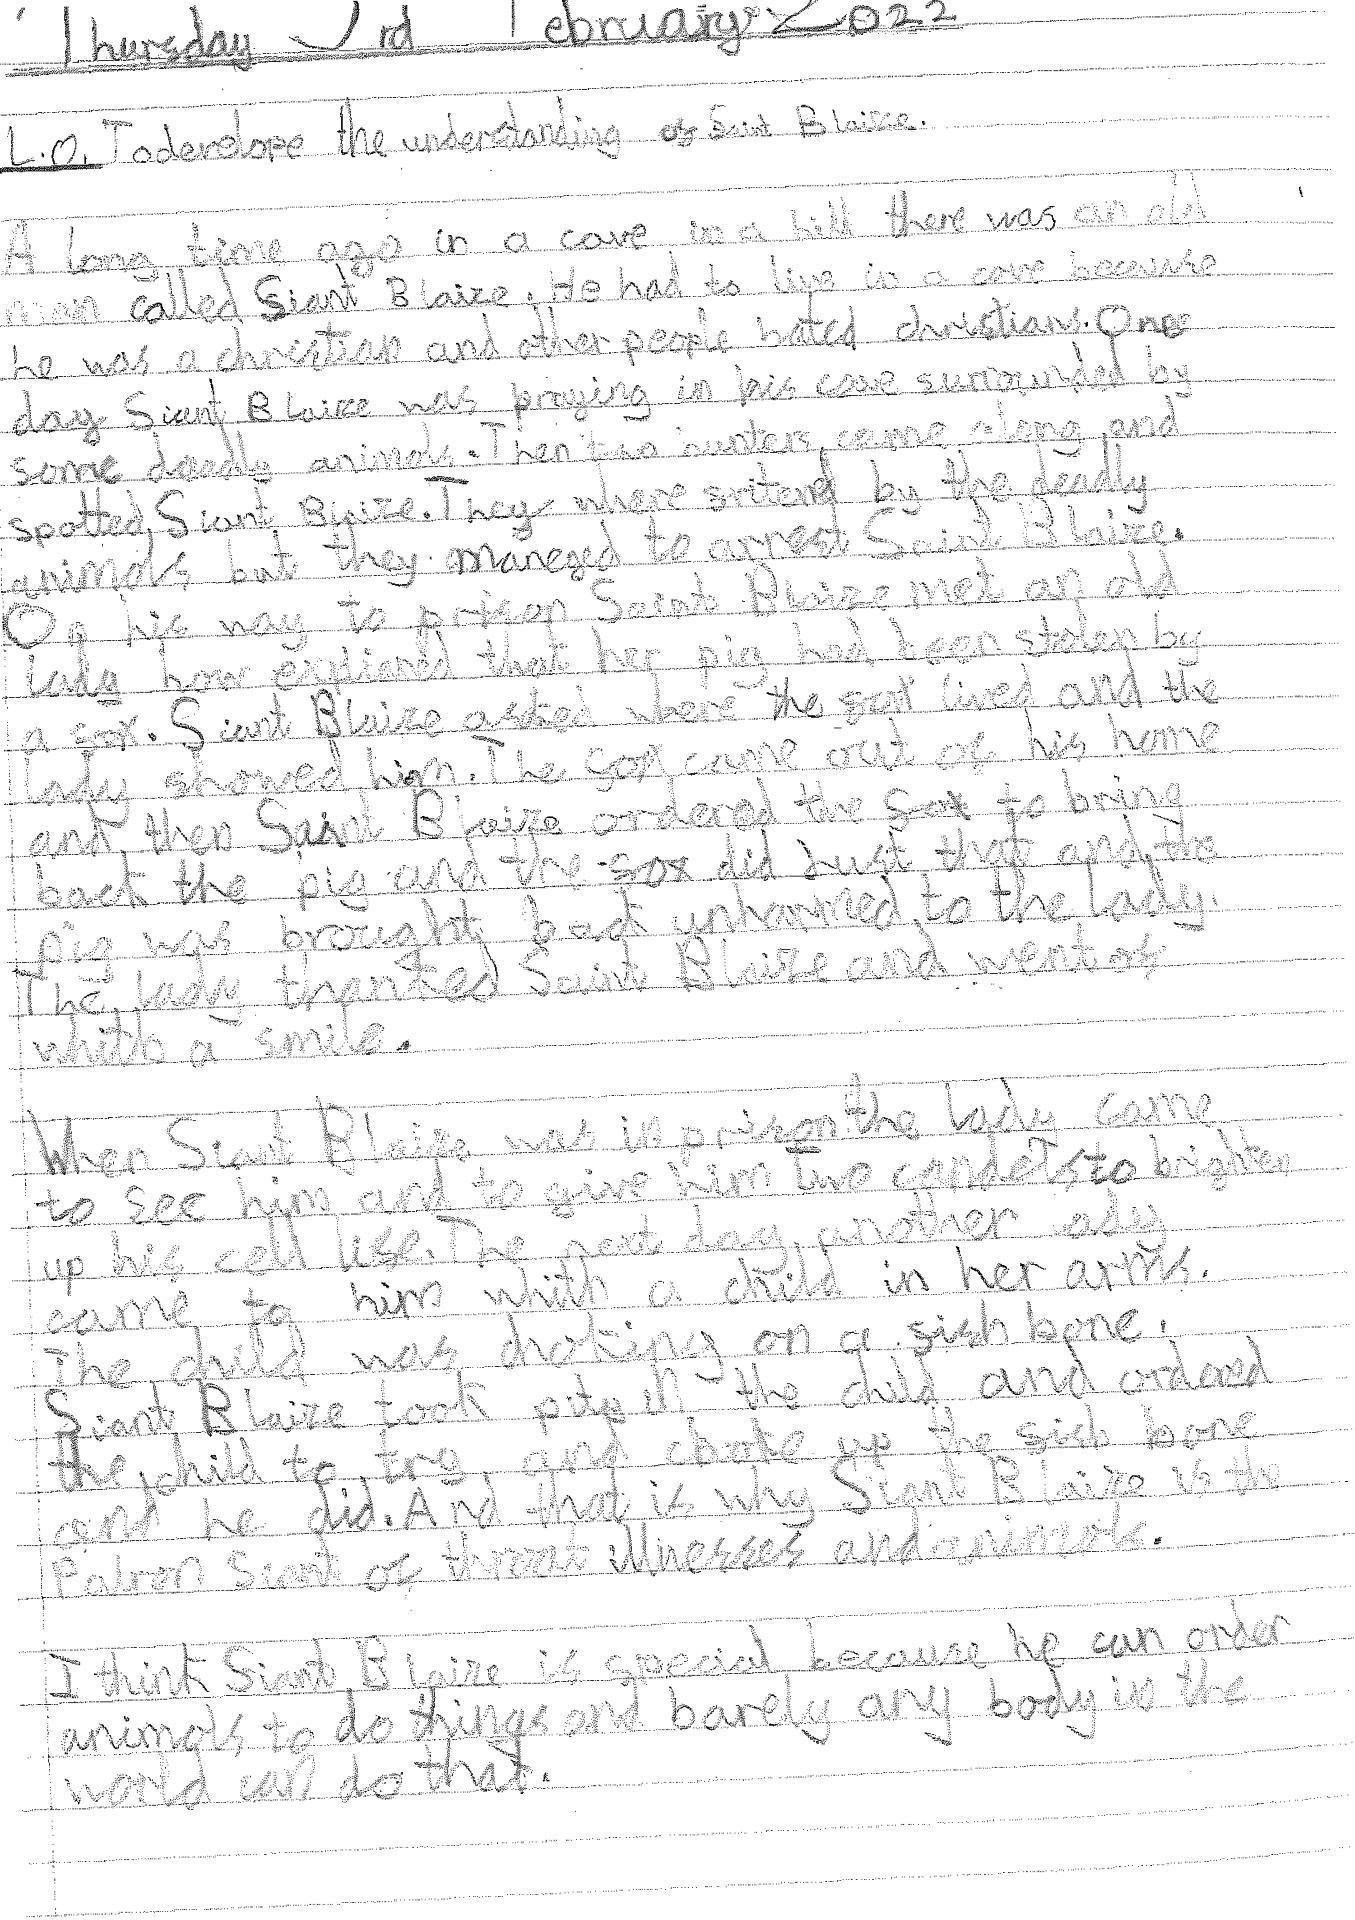 Thursday 3rd February 2022
L.O. To develope the understanding of Saint Blaize.
A long time ago in a cave in a hill there was an old
man called Siant Blaize. He had to live in a cave because
he was a christian and other people hated christians. One
day Siant Blaize was praying in his cave surrounded by
some deadly animals. Then two hunters came along and
spotted Siant Blaize. They where fritend by the deadly
animals but they maneged to arrest Saint Blaize.
On his way to prison Saint Blaize met an old
lady how explaned that her pig had been stolen by
a fox. Siant Blaize asked where the fox lived and the
lady showed him. The fox came out of his home
and then Saint Blaize ordered the fox to bring
back the pig and the fox did just that and the
pig was brought back unharmed to the lady.
The lady thanked Saint Blaize and went of
whith a smile.
When Siant Blaize was in prison the lady came
to see him and to give him two candels to brighten
up his cell life. The next day another lady
came to him whith a child in her arms.
The child was choking on a fish bone.
Siant Blaize took pity in the child and ordered
the child to try and choke up the fish bone
and he did. And that is why Siant Blaize is the
Patron Siant of throat illnesses and animals.
I think Siant Blaize is special because he can order
animals to do things and barely any body in the
world can do that.